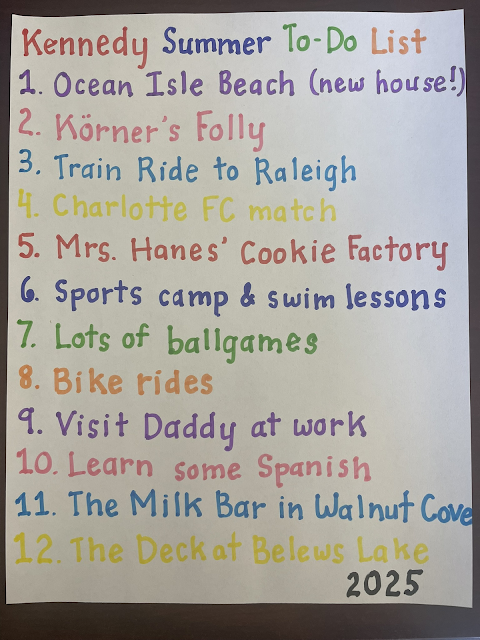 Kennedy Summer To-Do List
1. Ocean Isle Beach (new house!)
2. Körner's Folly
3. Train Ride to Raleigh
4. Charlotte FC match
5. Mrs. Hanes' Cookie Factory
6. Sports camp & swim lessons
7. Lots of ballgames
8. Bike rides
9. Visit Daddy at work
10. Learn some Spanish
11. The Milk Bar in Walnut Cove
12. The Deck at Belews Lake
2025